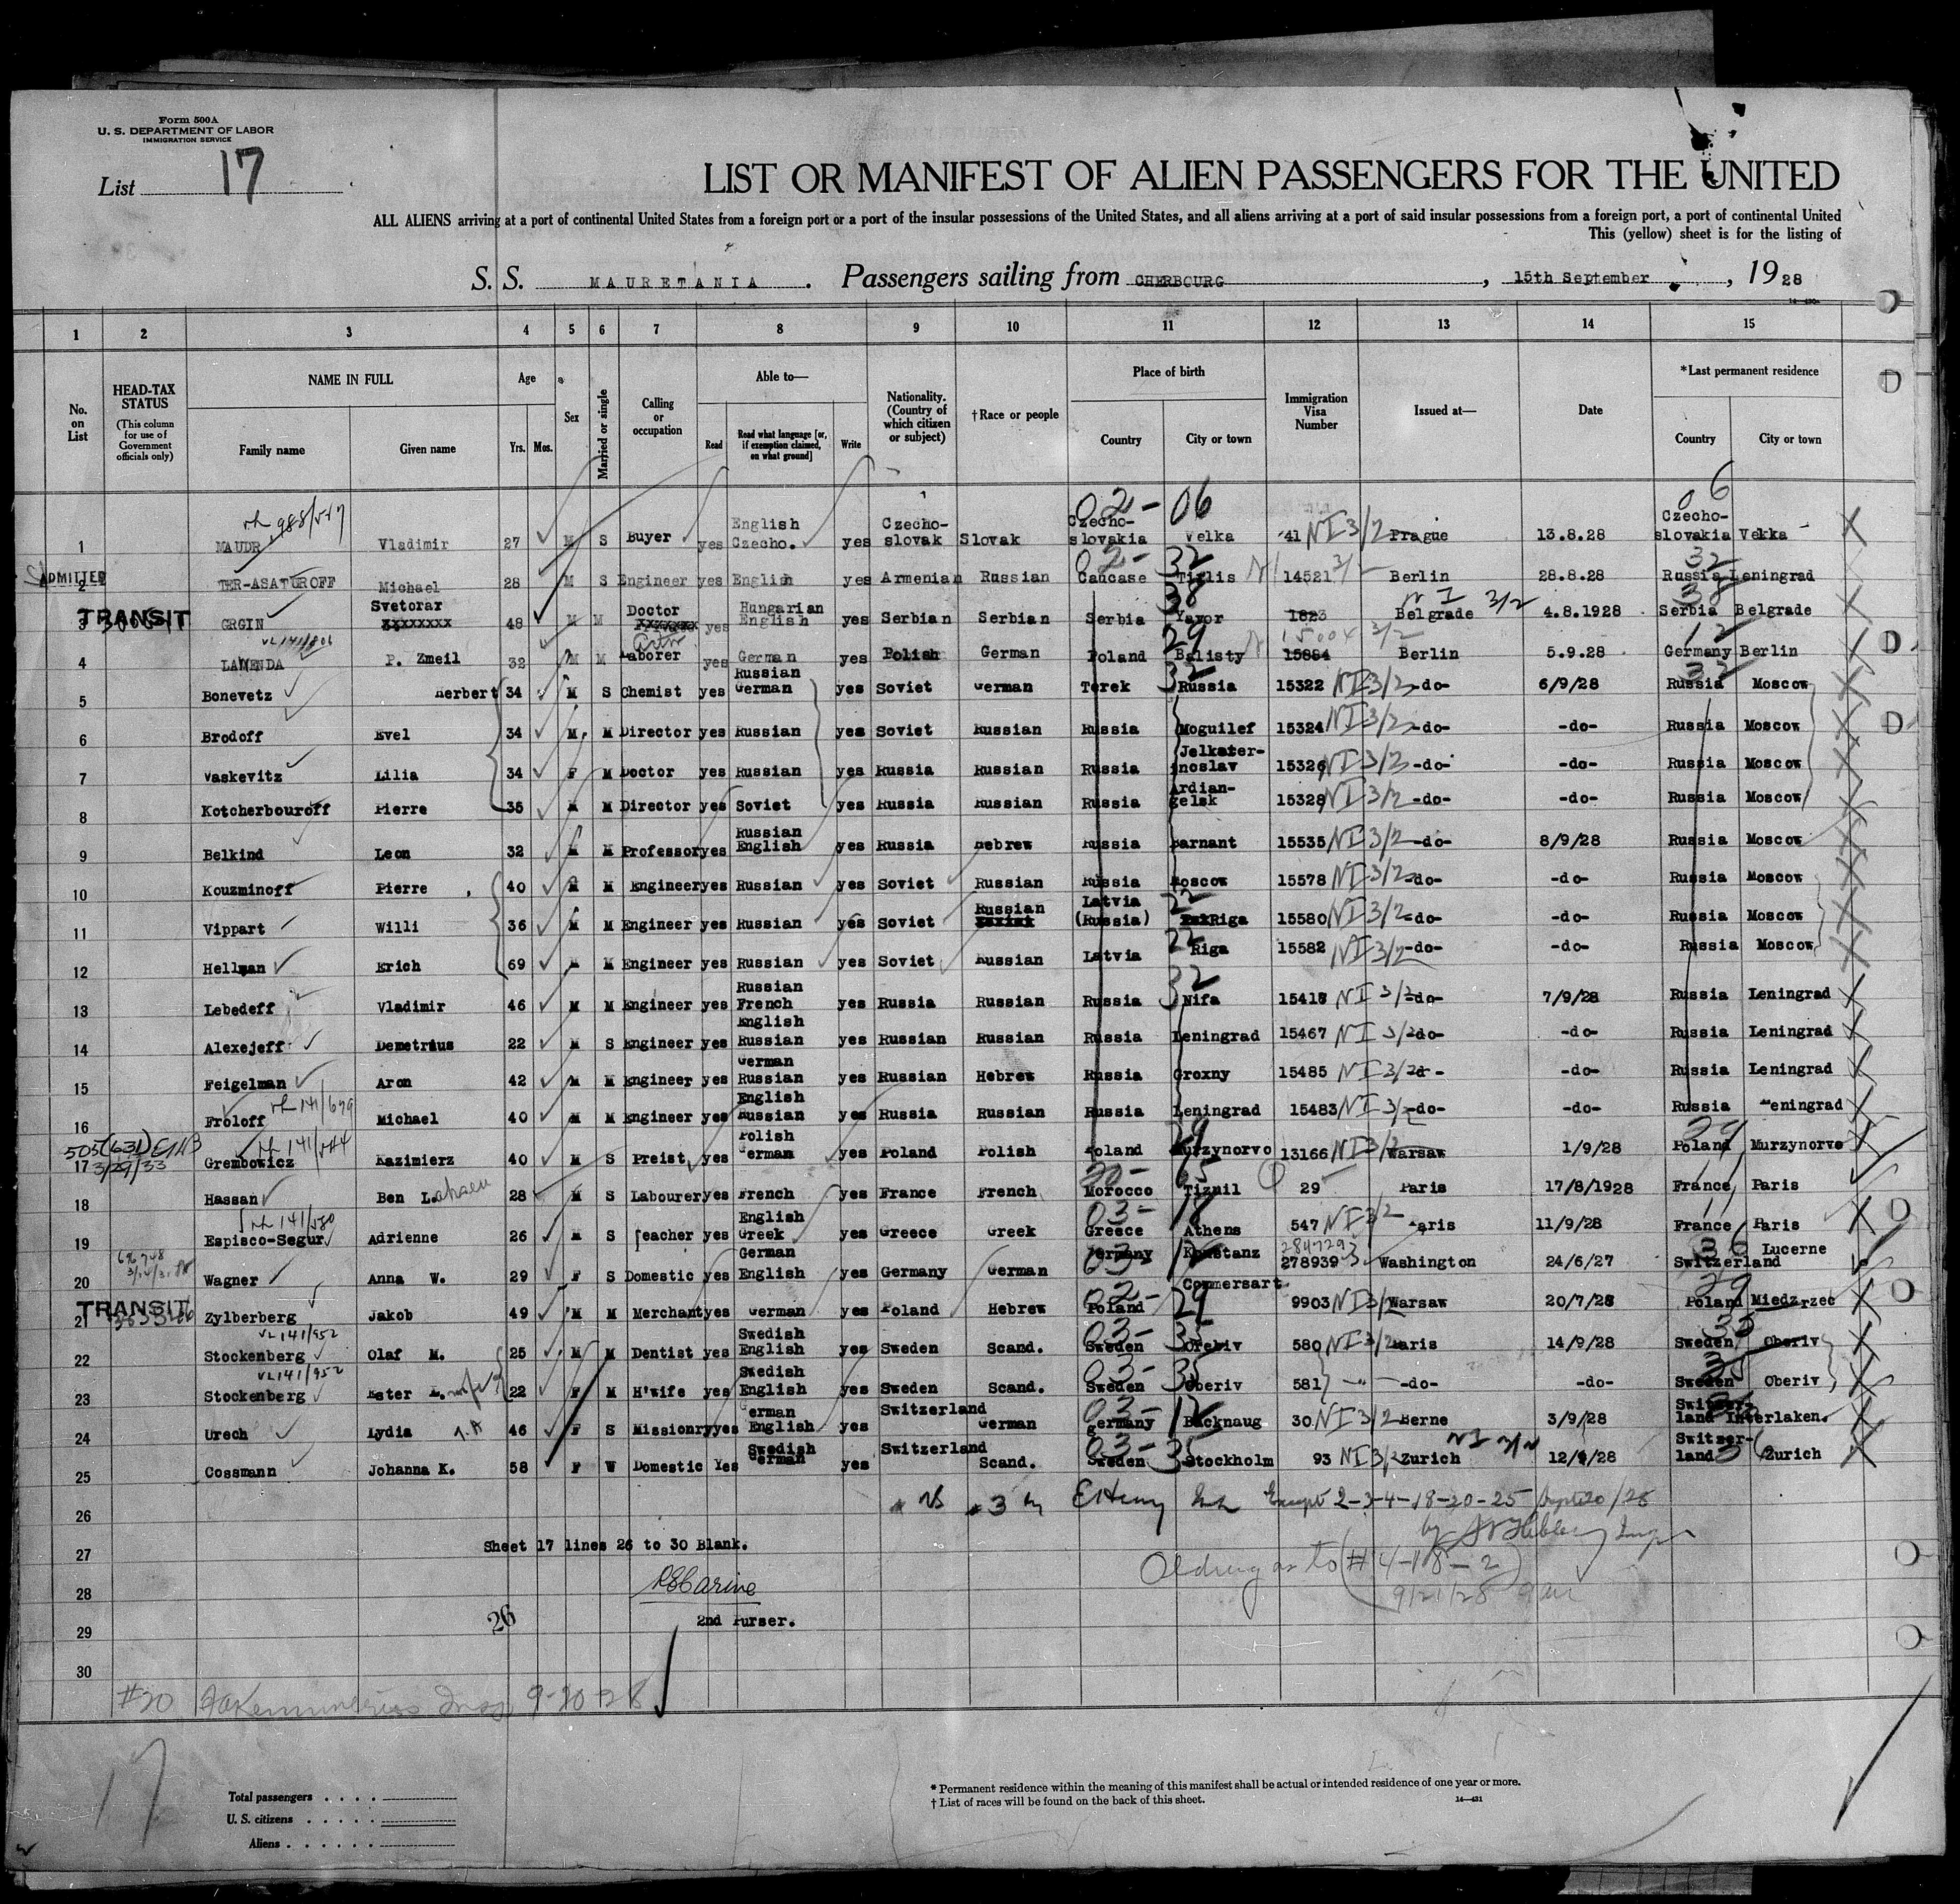 Form 500A
U. S. DEPARTMENT OF LABOR
IMMIGRATION SERVICE
List 17
LIST OR MANIFEST OF ALIEN PASSENGERS FOR THE UNITED
ALL ALIENS arriving at a port of continental United States from a foreign port or a port of the insular possessions of the United States, and all aliens arriving at a port of said insular possessions from a foreign port, a port of continental United
This (yellow) sheet is for the listing of
S. S. MAURETANIA. Passengers sailing from CHERBOURG, 15th September, 1928
1 2 3 4 5 6 7 8 9 10 11 12 13 14 15
No. on List
HEAD-TAX STATUS
(This column for use of Government officials only)
NAME IN FULL
Family name Given name
Age
Yrs. Mos.
Sex
Married or single
Calling or occupation
Able to—
Read Read what language [or, if exemption claimed, on what ground] Write
Nationality. (Country of which citizen or subject)
†Race or people
Place of birth
Country City or town
Immigration Visa Number
Issued at—
Date
*Last permanent residence
Country City or town
02- 06 06
1 MAUDR Vladimir 27 M S Buyer yes English Czecho. yes Czecho-slovak Slovak Czecho-slovakia Velka 41 NI 3/2 Prague 13.8.28 Czecho-slovakia Vekka
ADMITTED
2 TER-ASATUROFF Michael 28 M S Engineer yes English yes Armenian Russian Caucase Tiflis 14521 3/2 Berlin 28.8.28 Russia Leningrad
TRANSIT
3 GRGIN Svetorar 48 M M Doctor yes Hungarian English yes Serbian Serbian Serbia Yavor 1823 Belgrade NI 3/2 4.8.1928 Serbia Belgrade
4 LAWENDA P. Zmeil 32 M M Laborer yes German yes Polish German Poland Balisty 15884 15004 3/2 Berlin 5.9.28 Germany Berlin
5 Bonevetz Herbert 34 M S Chemist yes Russian German yes Soviet German Terek Russia 15322 NI 3/2 -do- 6/9/28 Russia Moscow
6 Brodoff Evel 34 M M Director yes Russian yes Soviet Russian Russia Moguilef 15324 NI 3/2 -do- -do- Russia Moscow
7 Vaskevitz Lilia 34 F M Doctor yes Russian yes Russia Russian Russia Jelkater-inoslav 15326 NI 3/2 -do- -do- Russia Moscow
8 Kotcherbouroff Pierre 35 M M Director yes Soviet yes Russia Russian Russia Ardian-gelsk 15328 NI 3/2 -do- -do- Russia Moscow
9 Belkind Leon 32 M M Professor yes Russian English yes Russia Hebrew Russia Barnant 15535 NI 3/2 -do- 8/9/28 Russia Moscow
10 Kouzminoff Pierre 40 M M Engineer yes Russian yes Soviet Russian Russia Moscow 15578 NI 3/2 -do- -do- Russia Moscow
11 Vippart Willi 36 M M Engineer yes Russian yes Soviet Russian Latvia (Russia) Riga 15580 NI 3/2 -do- -do- Russia Moscow
12 Hellman Erich 69 M M Engineer yes Russian yes Soviet Russian Latvia Riga 15582 NI 3/2 -do- -do- Russia Moscow
13 Lebedeff Vladimir 46 M M Engineer yes Russian French yes Russia Russian Russia Nifa 15418 NI 3/2 -do- 7/9/28 Russia Leningrad
14 Alexejeff Demetrius 22 M S Engineer yes English Russian yes Russian Russian Russia Leningrad 15467 NI 3/2 -do- -do- Russia Leningrad
15 Feigelman Aron 42 M M Engineer yes German Russian yes Russian Hebrew Russia Groxny 15485 NI 3/2 -do- -do- Russia Leningrad
16 Froloff Michael 40 M M Engineer yes English Russian yes Russia Russian Russia Leningrad 15483 NI 3/2 -do- -do- Russia Leningrad
17 3/29/33 Grembowicz Kazimierz 40 M S Preist yes Polish German yes Poland Polish Poland Murzynorvo 13166 NI 3/2 Warsaw 1/9/28 Poland Murzynorvo
18 Hassan Ben Lahsen 28 M S Labourer yes French yes France French Morocco Tiznil 29 Paris 17/8/1928 France Paris
19 Espisco-Segur Adrienne 26 M S Teacher yes English Greek yes Greece Greek Greece Athens 547 NI 3/2 Paris 11/9/28 France Paris
20 Wagner Anna W. 29 F S Domestic yes German English yes Germany German Germany Konstanz 278939 Washington 24/6/27 Switzerland Lucerne
TRANSIT
21 Zylberberg Jakob 49 M M Merchant yes German yes Poland Hebrew Poland Commersart. 9903 NI 3/2 Warsaw 20/7/28 Poland Miedzrzec
22 Stockenberg Olaf M. 25 M M Dentist yes Swedish English yes Sweden Scand. Sweden Orebiv 580 NI 3/2 Paris 14/9/28 Sweden Oberiv
23 Stockenberg Ester 22 F M H'wife yes Swedish English yes Sweden Scand. Sweden Oberiv 581 -"- -do- -do- Sweden Oberiv
24 Urech Lydia 46 F S Missionry yes German English yes Switzerland German Germany Backnaug 30 NI 3/2 Berne 3/9/28 Switzer-land Interlaken.
25 Cossmann Johanna K. 58 F W Domestic Yes Swedish German yes Switzerland Scand. Sweden Stockholm 93 NI 3/2 Zurich 12/9/28 Switzer-land Zurich
26 Except 2-3-4-18-20-25 Sept 20/28
27 Sheet 17 lines 26 to 30 Blank.
28
2nd Purser.
26
29
30
#20 9-20-28
as to (#4-18-2)
9/21/28
17
Total passengers
U. S. citizens
Aliens
* Permanent residence within the meaning of this manifest shall be actual or intended residence of one year or more.
† List of races will be found on the back of this sheet.
14—431